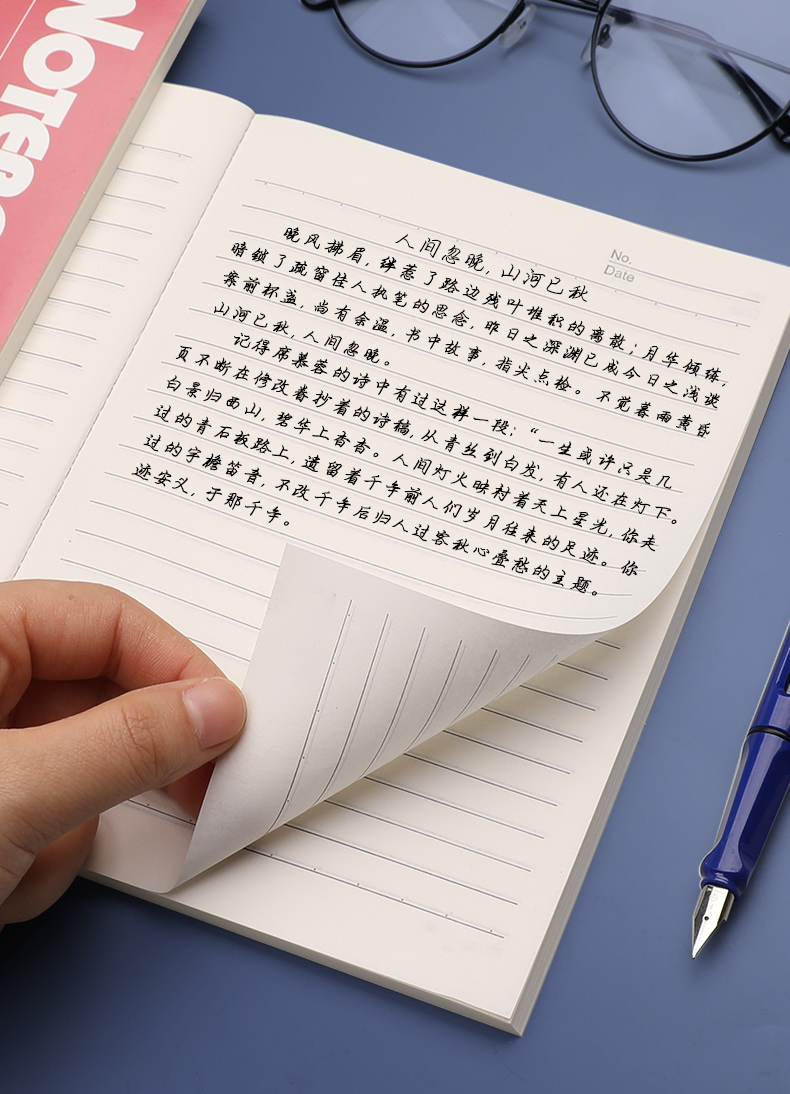 NOTEBO
No.
Date
人间忽晚，山河已秋
晚风拂眉，绊惹了路边残叶堆积的离散；月华倾练，
暗锁了疏窗佳人执笔的思念，昨日之深渊已成今日之浅谈
案前杯盏，尚有余温，书中故事，指尖点检。不觉暮雨黄昏
山河已秋，人间忽晚。
记得席慕蓉的诗中有过这样一段：“一生或许只是几
页不断在修改眷抄着的诗稿，从青丝到白发，有人还在灯下。
白景归西山，碧华上杳杳。人间灯火映衬着天上星光，你走
过的青石板路上，遗留着千年前人们岁月往来的足迹。你
过的宇檐笛音，不改千年后归人过客秋心叠愁的主题。
迹安义，于那千年。